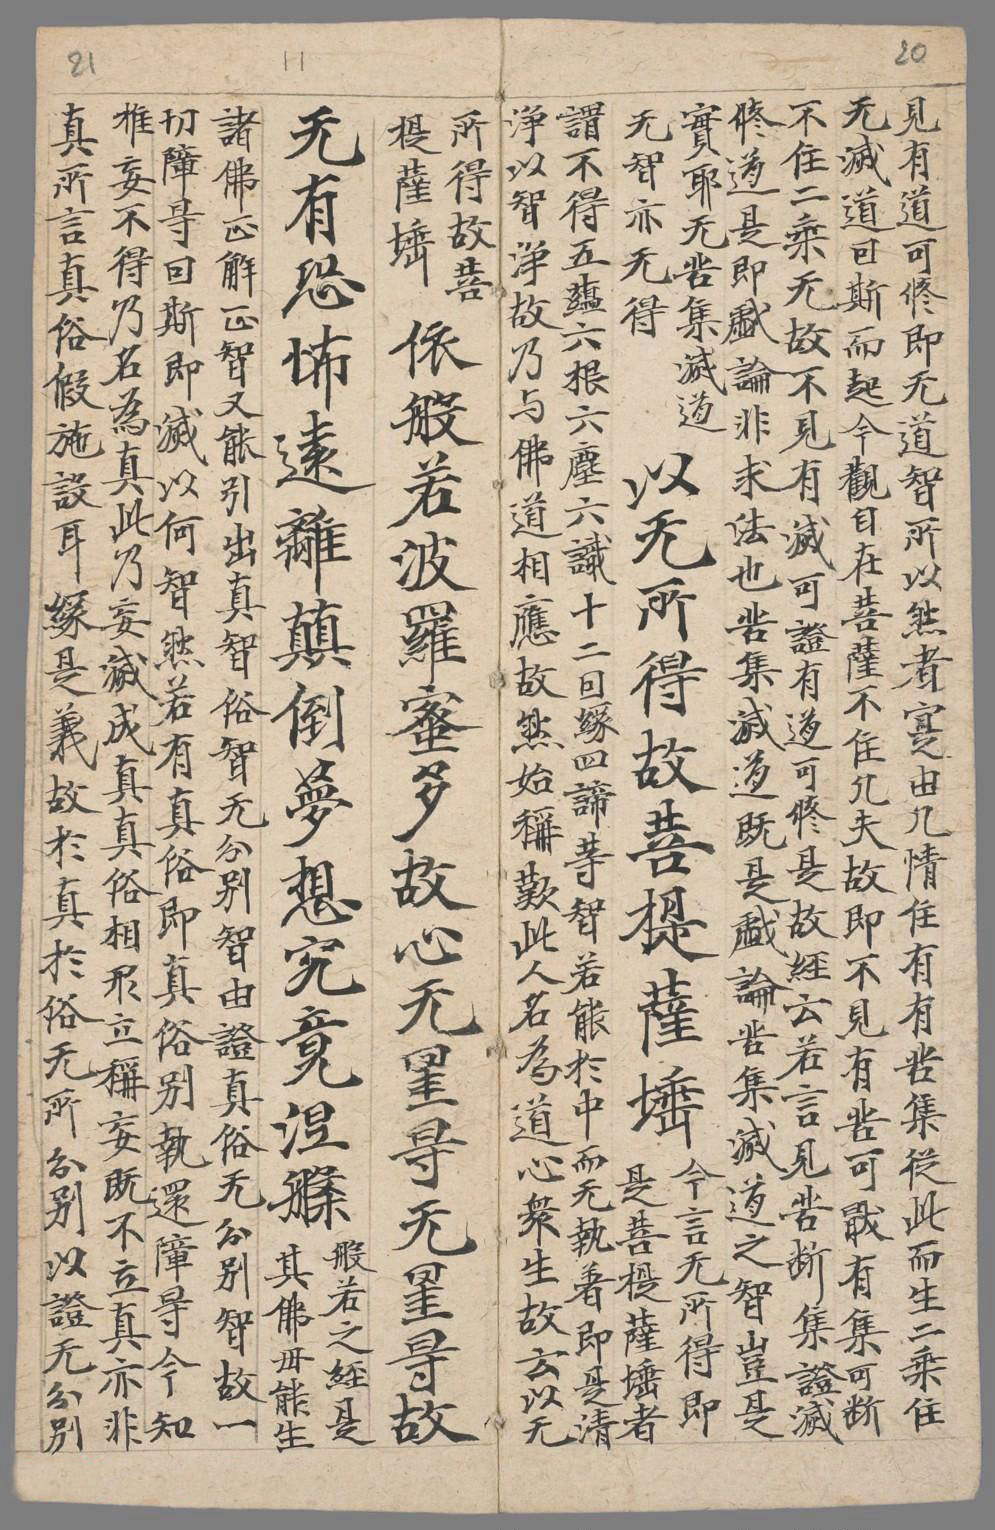 20
見有道可修即无道智所以然者寔由凡情住有有苦集從此而生二乘住
无滅道因斯而起今觀自在菩薩不住凡夫故即不見有苦可厭有集可断
不住二乘无故不見有滅可證有道可修是故經云若言見苦断集證滅
修道是即戱論非求法也苦集滅道既是戱論苦集滅道之智豈是
實耶无苦集滅道
无智亦无得
以无所得故菩提薩埵
今言无所得即
是菩提薩埵者
謂不得五蘊六根六塵六識十二因緣四諦等智若能於中而无執著即是清
淨以智淨故乃与佛道相應故然始稱歎此人名為道心衆生故云以无
11
21
所得故菩
提薩埵
依般若波羅蜜多故心无罣㝵无罣㝵故
无有恐怖遠離顛倒夢想究竟涅槃
般若之經是
其佛毋能生
諸佛正解正智又能引出真智俗智无分别智由證真俗无分别智故一
切障㝵因斯即滅以何智然若有真俗即真俗别執還障㝵今知
推妄不得乃名為真此乃妄滅成真真俗相形立稱妄既不立真亦非
真所言真俗假施設耳緣是義故於真於俗无所分别以證无分别